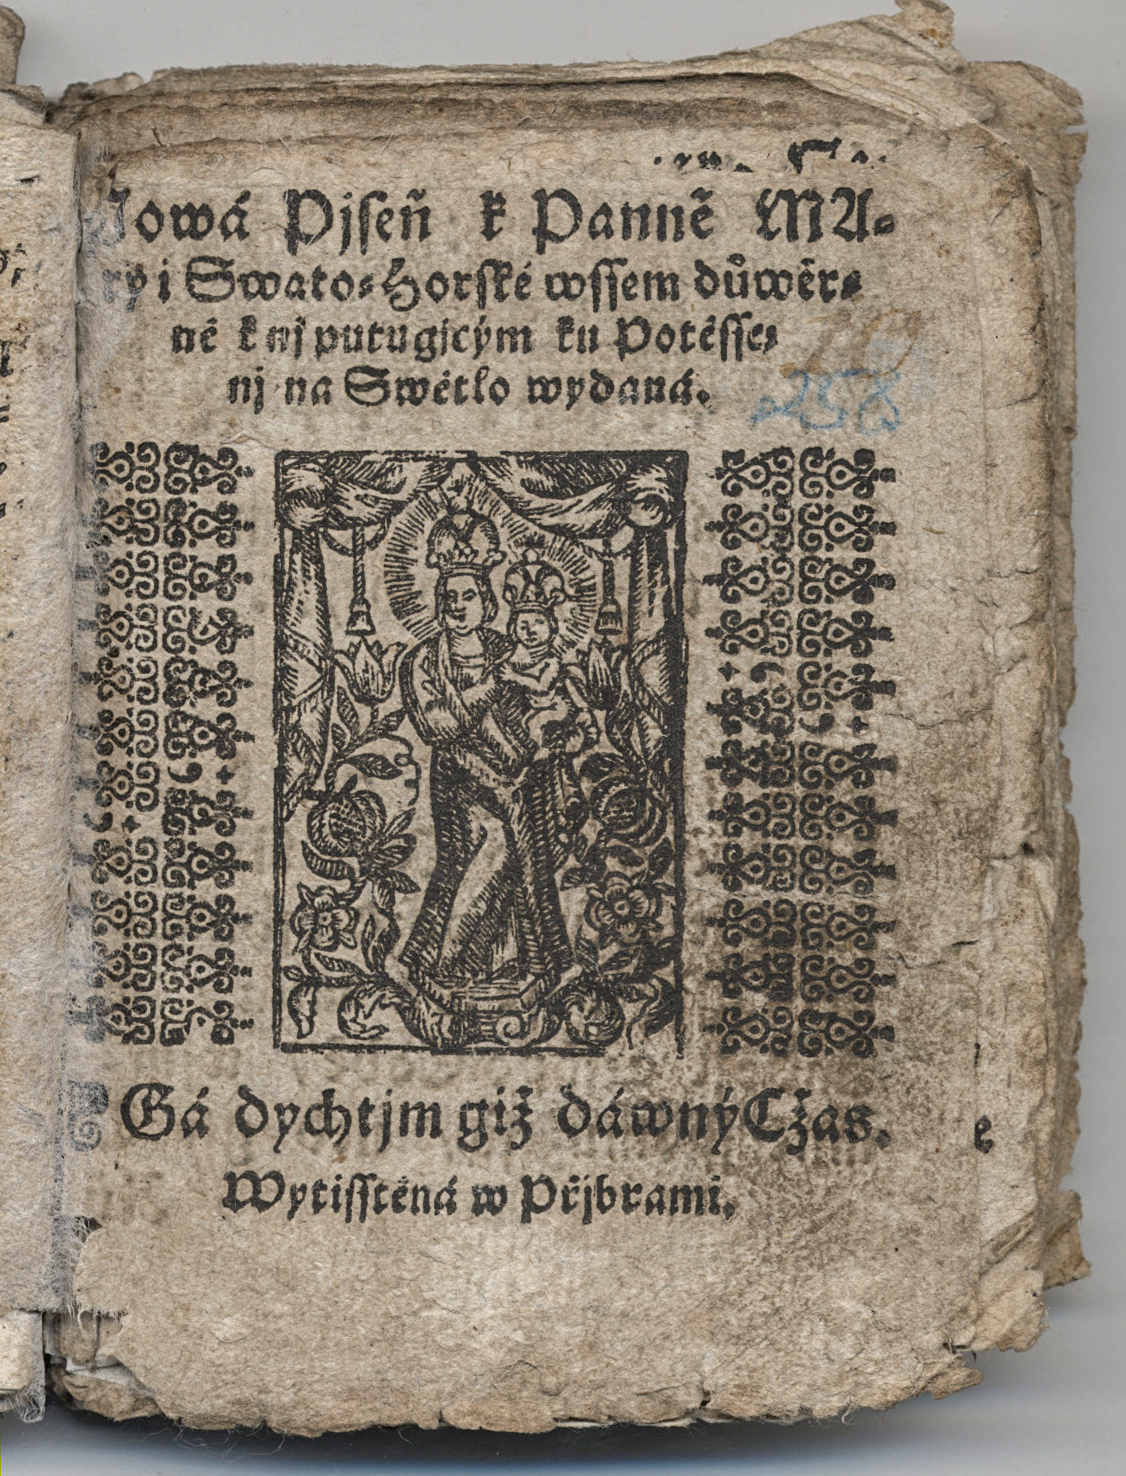 Nowá Pjseň k Panně MA-
ryi Swato-Horské wssem důwěr-
ně k nj putugjcým ku Potěsse-
nj na Swětlo wydaná.
258
Gá dychtjm giž dáwný Cžas.
e
Wytisstěná w Přjbrami.